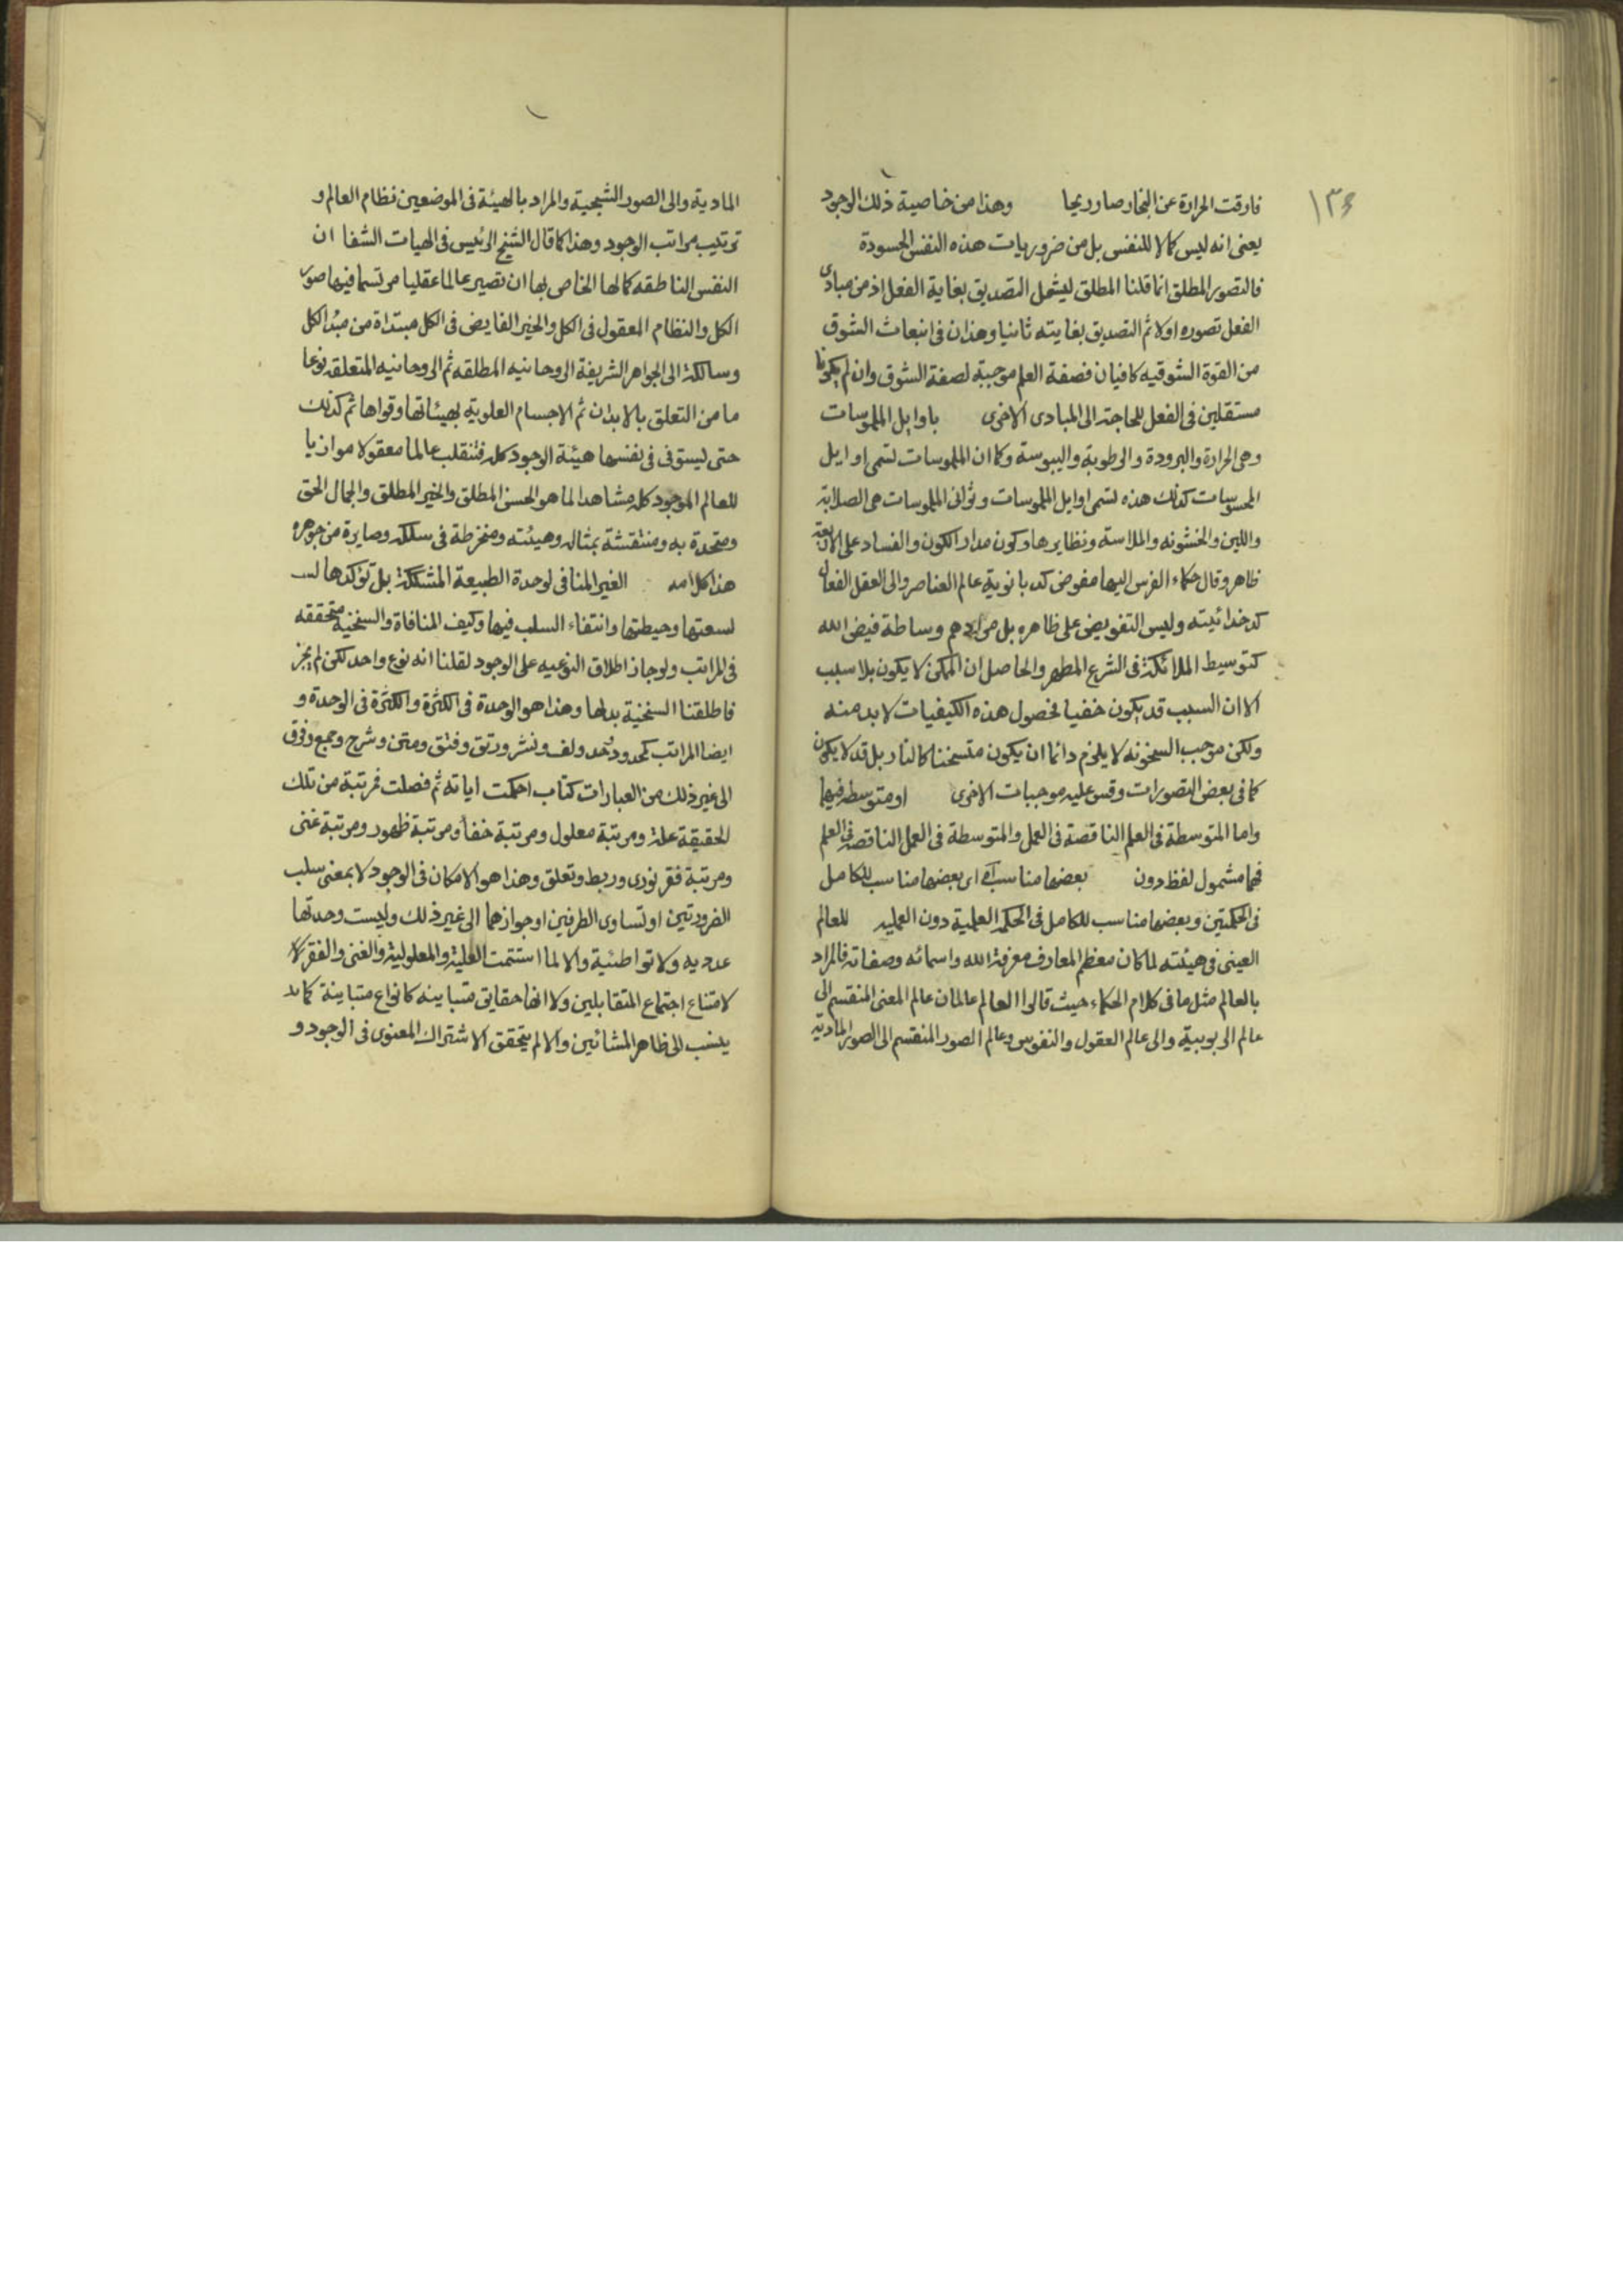 ١٣٤
فارقت الحرارة عن البخار صار ريحا وهذا من خاصية ذلك الوجود
يعنى انه ليس كمالا للنفس بل من ضروريات هذه النفس الحسودة
فالتصور المطلق انما قلنا المطلق ليشمل التصديق بغاية الفعل اذ من مبادى
الفعل تصوره اولا ثم التصديق بغايته ثانيا وهذان فى انبعاث الشوق
من القوة الشوقيه كافيان فصفة العلم موجبة لصفة الشوق وان لم يكونا
مستقلين فى الفعل للحاجة الى المبادى الاخرى باوايل الملموسات
وهى الحرارة والبرودة والرطوبة واليبوسة وكما ان الملموسات تسمى اوايل
المحسوسات كذلك هذه تسمى اوايل الملموسات وثوانى الملموسات هى الصلابة
واللين والخشونه والملاسة ونظايرها وكون مدار الكون والفساد على الاربعة
ظاهر وقال حكماء الفرس اليها مفوض كدبانوية عالم العناصر والى العقل الفعال
كدخدائيته وليس التفويض على ظاهره بل مرادهم وساطة فيض الله
كتوسيط الملائكة فى الشرع المطهر والحاصل ان الممكن لا يكون بلا سبب
الا ان السبب قد يكون خفيا فحصول هذه الكيفيات لا بد منه
ولكن موجب السخونه لا يلزم دائما ان يكون متسخنا كالنار بل قد لا يكون
كما فى بعض التصورات وقس عليه موجبات الاخرى او متوسطه فيها
واما المتوسطة فى العلم الناقصة فى العمل والمتوسطة فى العمل الناقصة فى العلم
فهما مشمول لفظ دون بعضها مناسب اى بعضها مناسب للكامل
فى الحكمتين وبعضها مناسب للكامل فى الحكمة العلمية دون العمليه للعالم
العينى فى هيئته لما كان معظم المعارف معرفة الله واسمائه وصفاته فالمراد
بالعالم مثل ما فى كلام الحكماء حيث قالوا العالم عالمان عالم المعنى المنقسم الى
عالم الربوبية والى عالم العقول والنفوس وعالم الصور المنقسم الى الصور المادية
المادية والى الصور الشبحية والمراد بالهيئة فى الموضعين نظام العالم و
ترتيب مراتب الوجود وهذا كما قال الشيخ الرئيس فى الهيات الشفا ان
النفس الناطقه كمالها الخاص بها ان تصير عالما عقليا مرتسما فيها صور
الكل والنظام المعقول فى الكل والخير الفايض فى الكل مبتداة من مبدا الكل
وسالكة الى الجواهر الشريفة الروحانيه المطلقه ثم الروحانيه المتعلقه نوعا
ما من التعلق بالابدان ثم الاجسام العلوية بهيئاتها وقواها ثم كذلك
حتى ليستوفى فى نفسها هيئة الوجود كله فتنقلب عالما معقولا موازيا
للعالم الموجود كله مشاهدا لما هو الحسن المطلق والخير المطلق والجمال الحق
ومتحدة به ومنتقشة بمثاله وهيئته ومنخرطة فى سلكه وصايرة من جوهره
هذا كلامه الغير المنافى لوحدة الطبيعة المشككة بل تؤكدها
لسعتها وحيطتها وانتفاء السلب فيها وكيف المنافاة والسنخية متحققه
فى المراتب ولو جاز اطلاق النوعيه على الوجود لقلنا انه نوع واحد لكن لم يجز
فاطلقنا السنخية بدلها وهذا هو الوحدة فى الكثرة والكثرة فى الوحدة و
ايضا المراتب كحد ود ولف ونشر ورتق وفتق ومتن وشرح وجمع وفرق
الى غير ذلك من العبارات كتاب احكمت اياته ثم فصلت فمرتبة من تلك
الحقيقة علة ومرتبة معلول ومرتبة خفأ ومرتبة ظهور ومرتبة غنى
ومرتبة فقر نورى وربط وتعلق وهذا هو الامكان فى الوجود لا بمعنى سلب
الضرورتين او تساوى الطرفين او جوازهما الى غير ذلك وليست وحدتها
عدديه ولا تواطئية والا لما استتمت العلية والمعلولية والغنى والفقر
لامتناع اجتماع المتقابلين ولا انها حقايق متباينه كانواع متباينة كما
ينسب الى ظاهر المشائين والا لم يتحقق الاشتراك المعنوى فى الوجود و